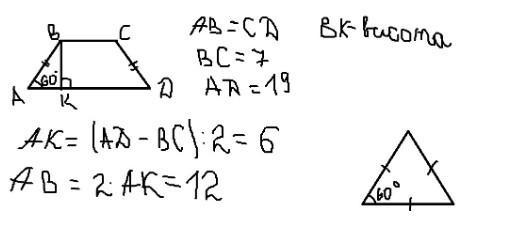 B C
60°
A K D
AB = CD
BC = 7
AD = 19
BK-висота
AK = (AD - BC) : 2 = 6
AB = 2·AK = 12
60°